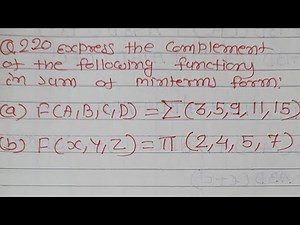 Q.2.20 Express the complement
of the following functions
in sum of minterms form:
(a) F(A,B,C,D) = Σ(3,5,9,11,15)
(b) F(x,y,z) = π (2,4,5,7)